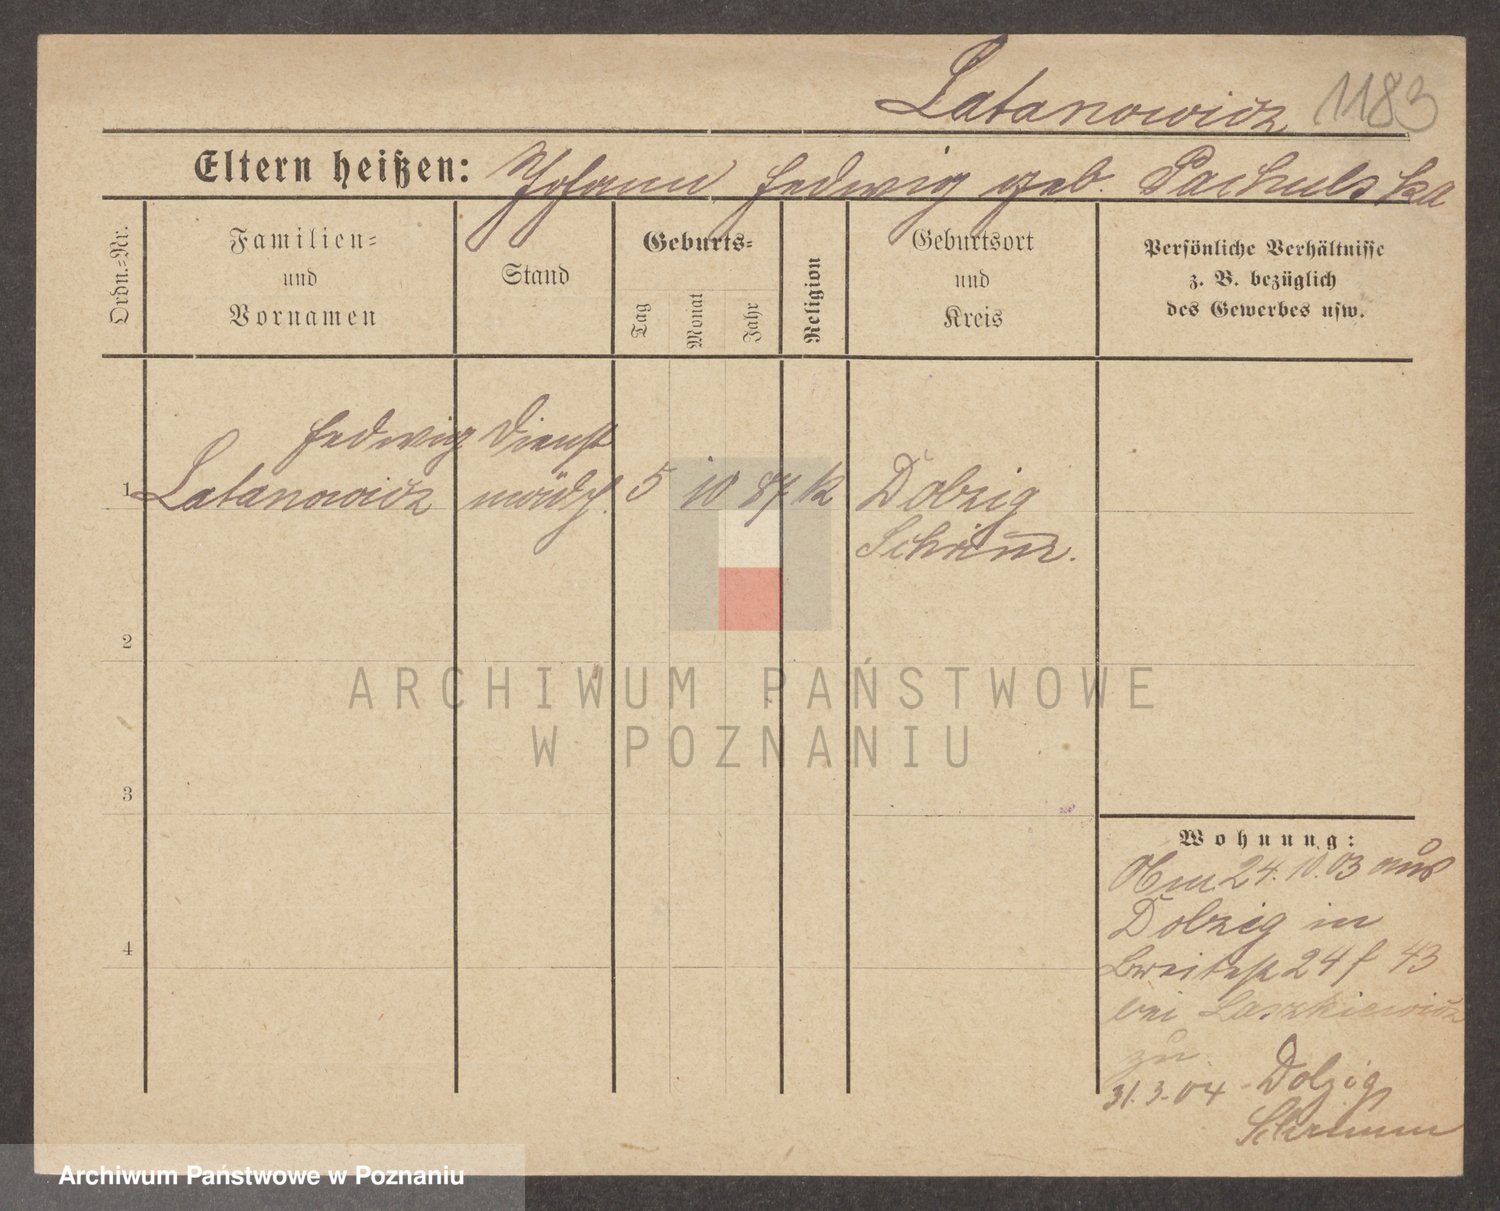 Latanowicz 1183
Eltern heißen: Johann Hedwig geb. Pachulska
Ordn.=Nr.
Familien=
und
Vornamen
Stand
Geburts=
Tag
Monat
Jahr
Religion
Geburtsort
und
Kreis
Persönliche Verhältnisse
z. B. bezüglich
des Gewerbes usw.
Hedwig Dienst
1 Latanowicz mädch. 5 10 87 k Dolzig
Schrim.
2
ARCHIWUM PAŃSTWOWE
W POZNANIU
3
Wohnung:
Am 24.10.03 aus
Dolzig in
4
Breitestr 24 f 43
bei Laszkiewicz
zu
31.3.04 Dolzig
Schrimm
Archiwum Państwowe w Poznaniu